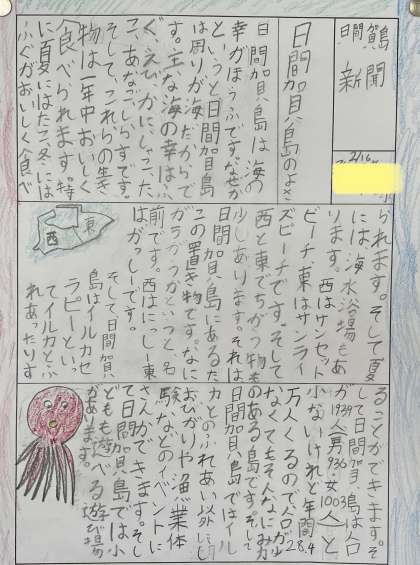 日間賀
新聞
2/16
日間賀島のよさ
日間賀島は海の
幸がほうふです。なぜか
というと日間賀島
は周りが海だからで
す。主な海の幸はふ
ぐ、えび、かに、しこ、た
こ、あなご、しらすです。
そして、これらの生き
物は一年中おいしく
食べられます。特
に夏にはたこ、冬には
ふぐがおいしく食べ
られます。そして夏
には海水浴場もあ
ります。西はサンセット
ビーチ、東はサンライ
ズビーチです。そして
西と東でちがう物も
少しあります。それは
日間賀島にあるた
この置き物です。なに
がちがうかというと、名
前です。西はにっしー、東
はがっしーです。
東
西
そして、日間賀
島はイルカセ
ラピーといっ
てイルカとふ
れあったりす
ることができます。そ
して日間賀島は人口
が1939人男936女1003人と
小ないけれど年間28.4
万人くるので人口が少
なくてもそんなにみ力
のある島です。そして
日間賀島ではイル
カとのふれあい以外にし
おひがりや漁業体
験などのイベントに
さんかできます。そし
て日間賀島では小
どもも遊べる遊び場
があります。